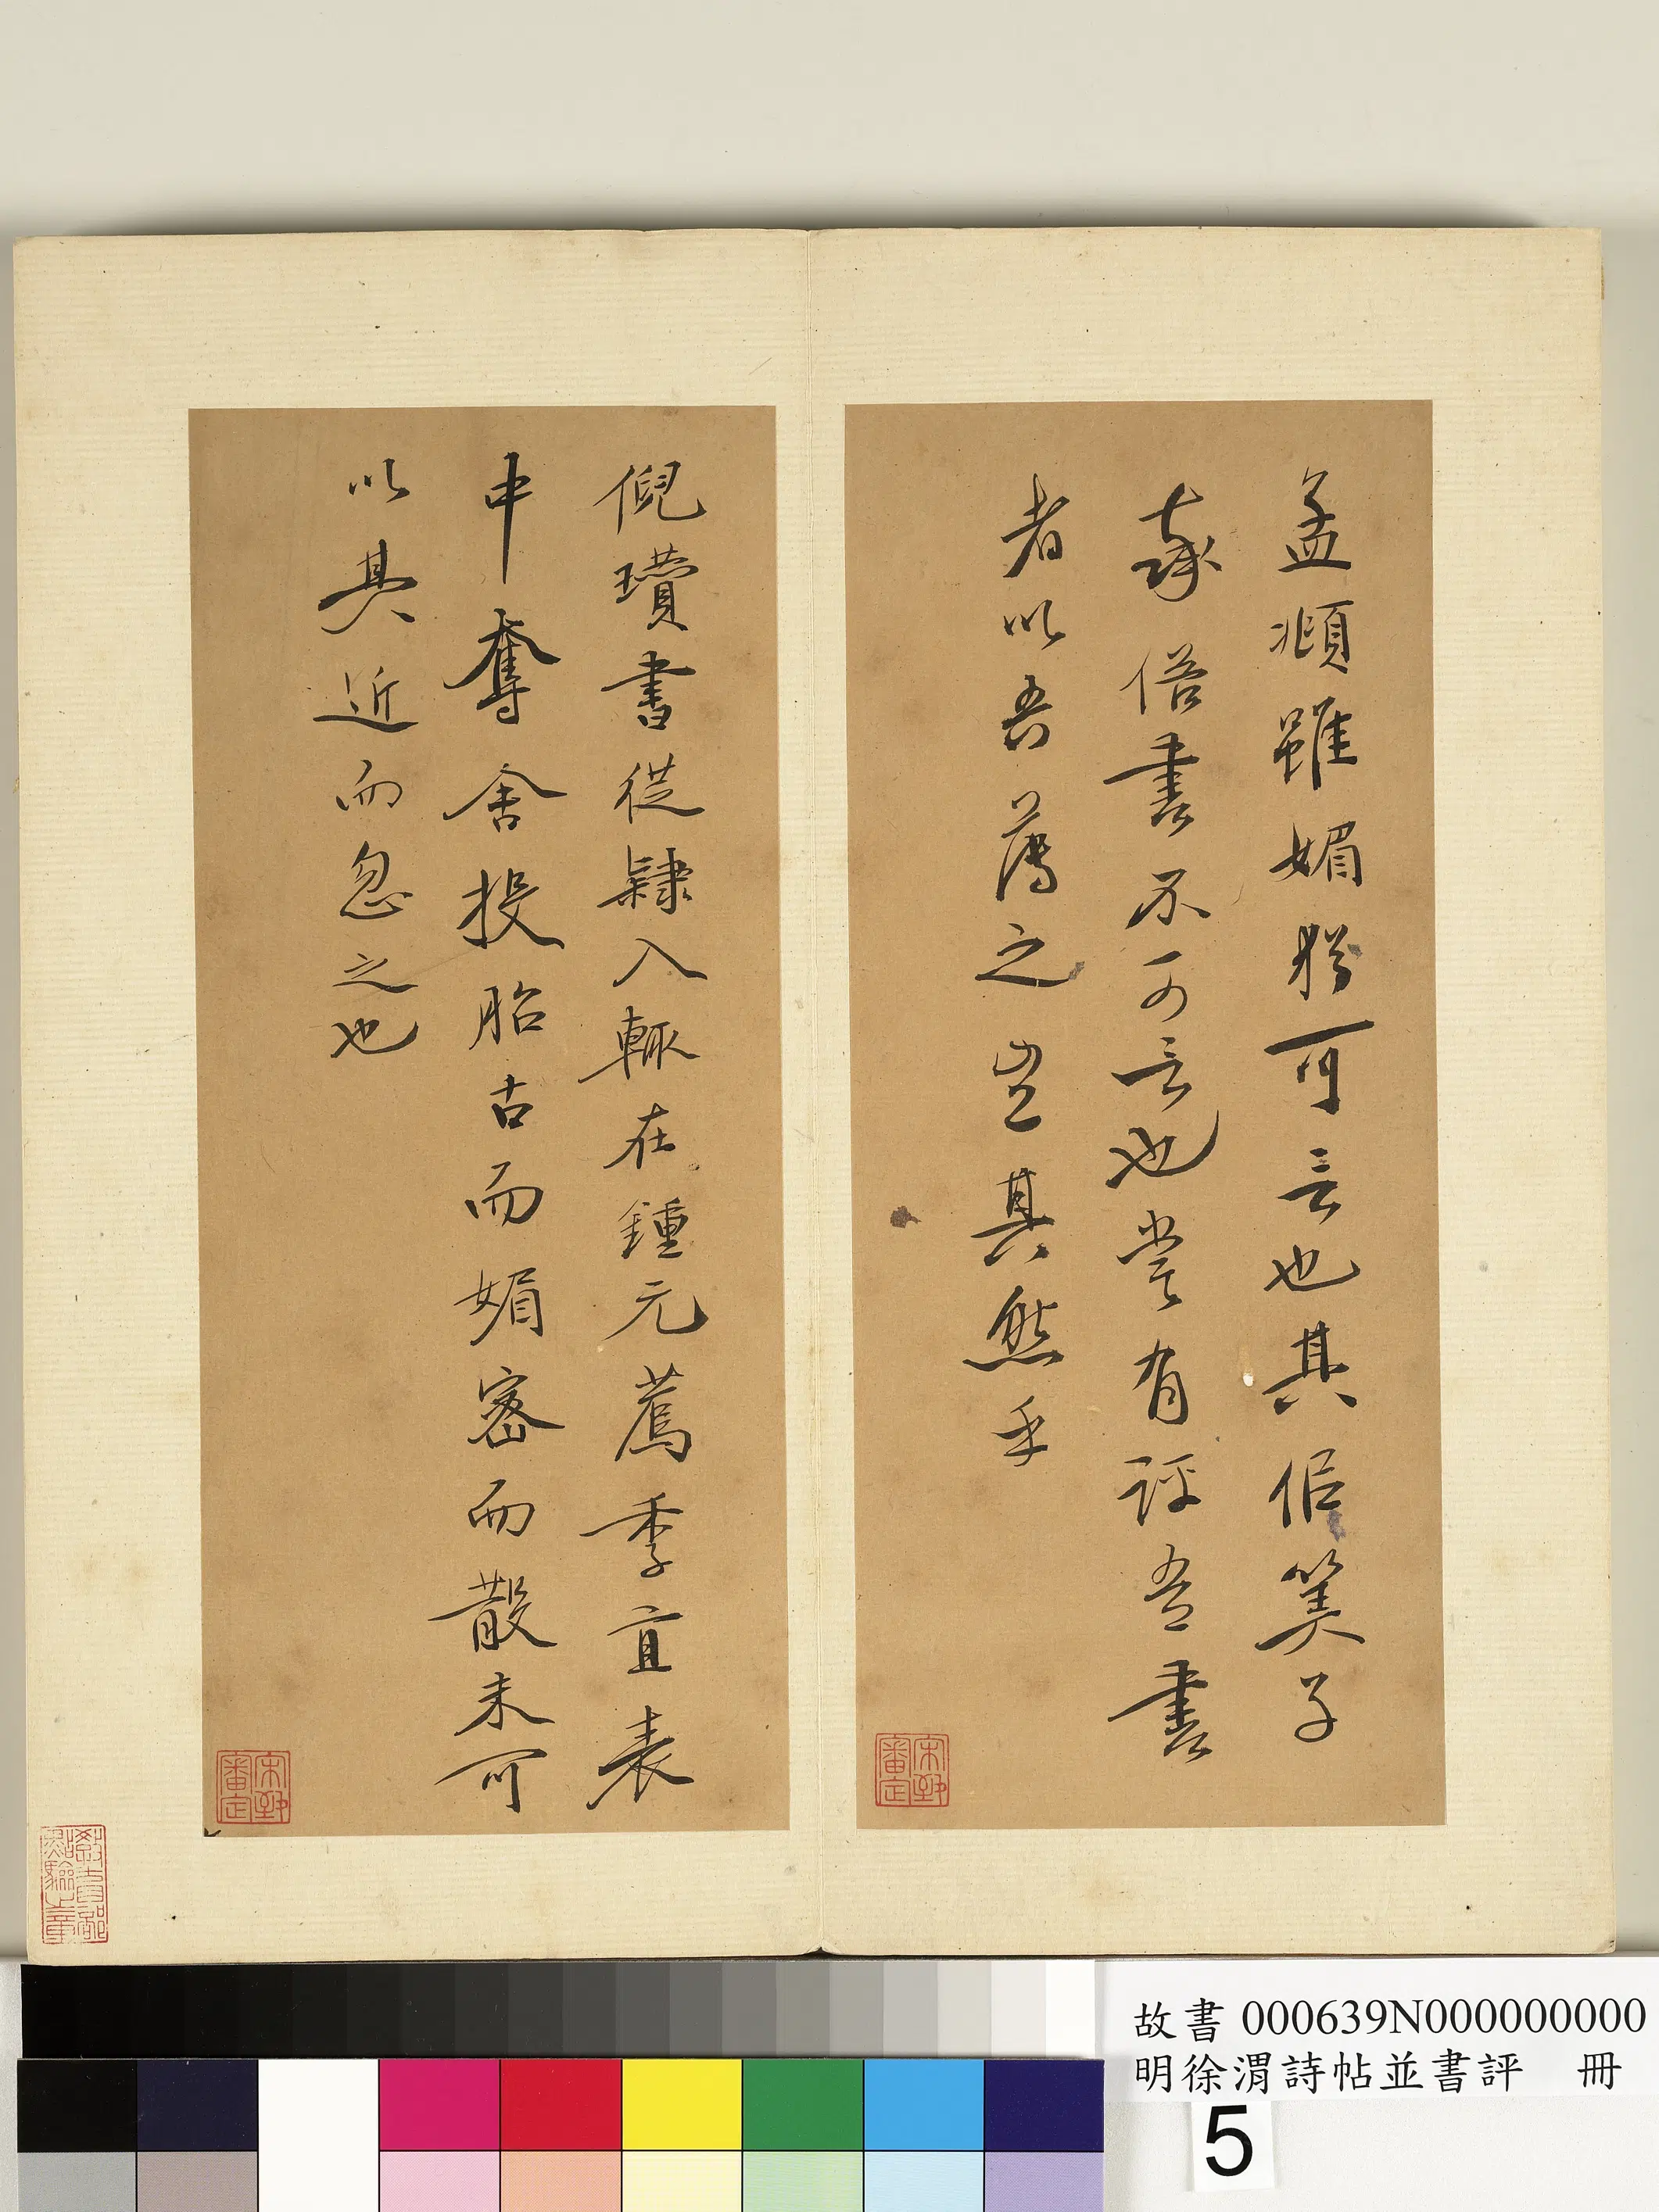 孟頫雖媚猶可言也其佀筭子
率俗書不可言也嘗有評吾書
者以吾薄之豈其然乎
倪瓚書從隸入輒在鍾元薦季直表
中奪舍投胎古而媚密而散未可
以其近而忽之也
宋犖
審定
宋犖
審定
教育部
點驗之章
故書 000639N000000000
明徐渭詩帖並書評 冊
5